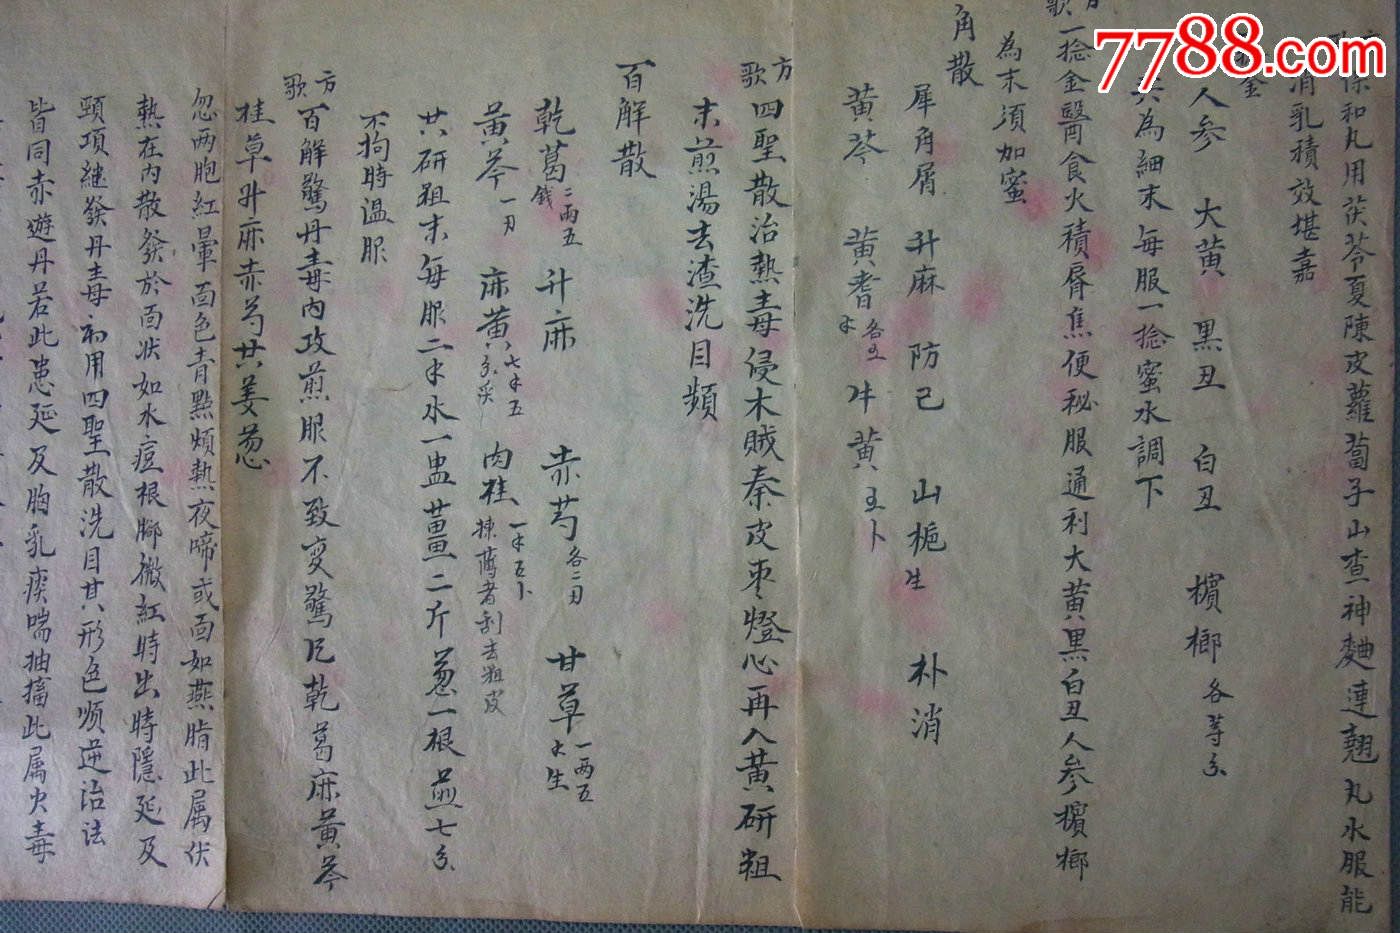 7788.com
保和丸用茯苓夏陳皮蘿蔔子山查神麯連翹丸水服能
消乳積效堪嘉
金
人参 大黄 黑丑 白丑 檳榔各等分
共為細末每服一捻蜜水調下
歌一捻金醫食火積膺焦便秘服通利大黄黒白丑人参檳榔
為末須加蜜
角散
犀角屑 升麻 防己 山梔生 朴消
黄芩 黄耆各五 牛黄五卜
方歌 四聖散治熱毒侵木賊秦皮枣燈心再入黄研粗
末煎湯去渣洗目頻
百解散
乾葛二兩五錢 升麻 赤芍各二刃 甘草一兩五 生
黄芩一刃 麻黄七 五 肉桂 揀薄者刮去粗皮
共研粗末每服二 水一盅薑二斤葱一根煎七分
不拘時温服
方歌 百解驚丹毒内攻煎服不致变驚 乾葛麻黄芩
桂草升麻赤芍共姜葱
忽两胞紅暈面色青黯煩熱夜啼或面如燕脂此属伏
熱在内散發於面状如水痘根脚微紅時出時隱延及
頸項継發丹毒初用四聖散洗目其形色順逆治法
皆同赤遊丹若此患延及胸乳痰喘抽搐此属火毒